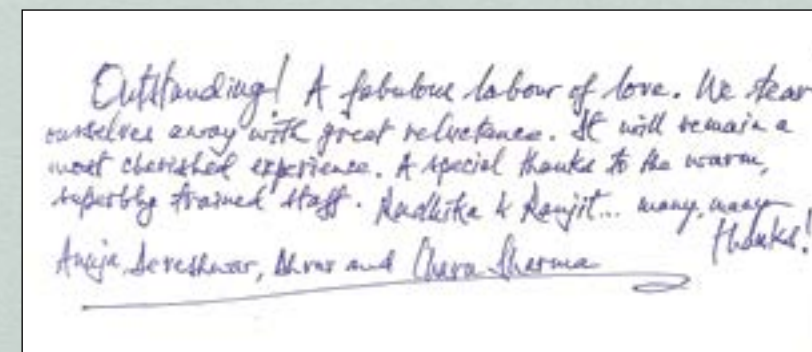 Outstanding! A fabulous labour of love. We tear
ourselves away with great reluctance. It will remain a
most cherished experience. A special thanks to the warm,
superbly trained staff. Radhika & Ranjit... many, many
thanks!
and Sharma